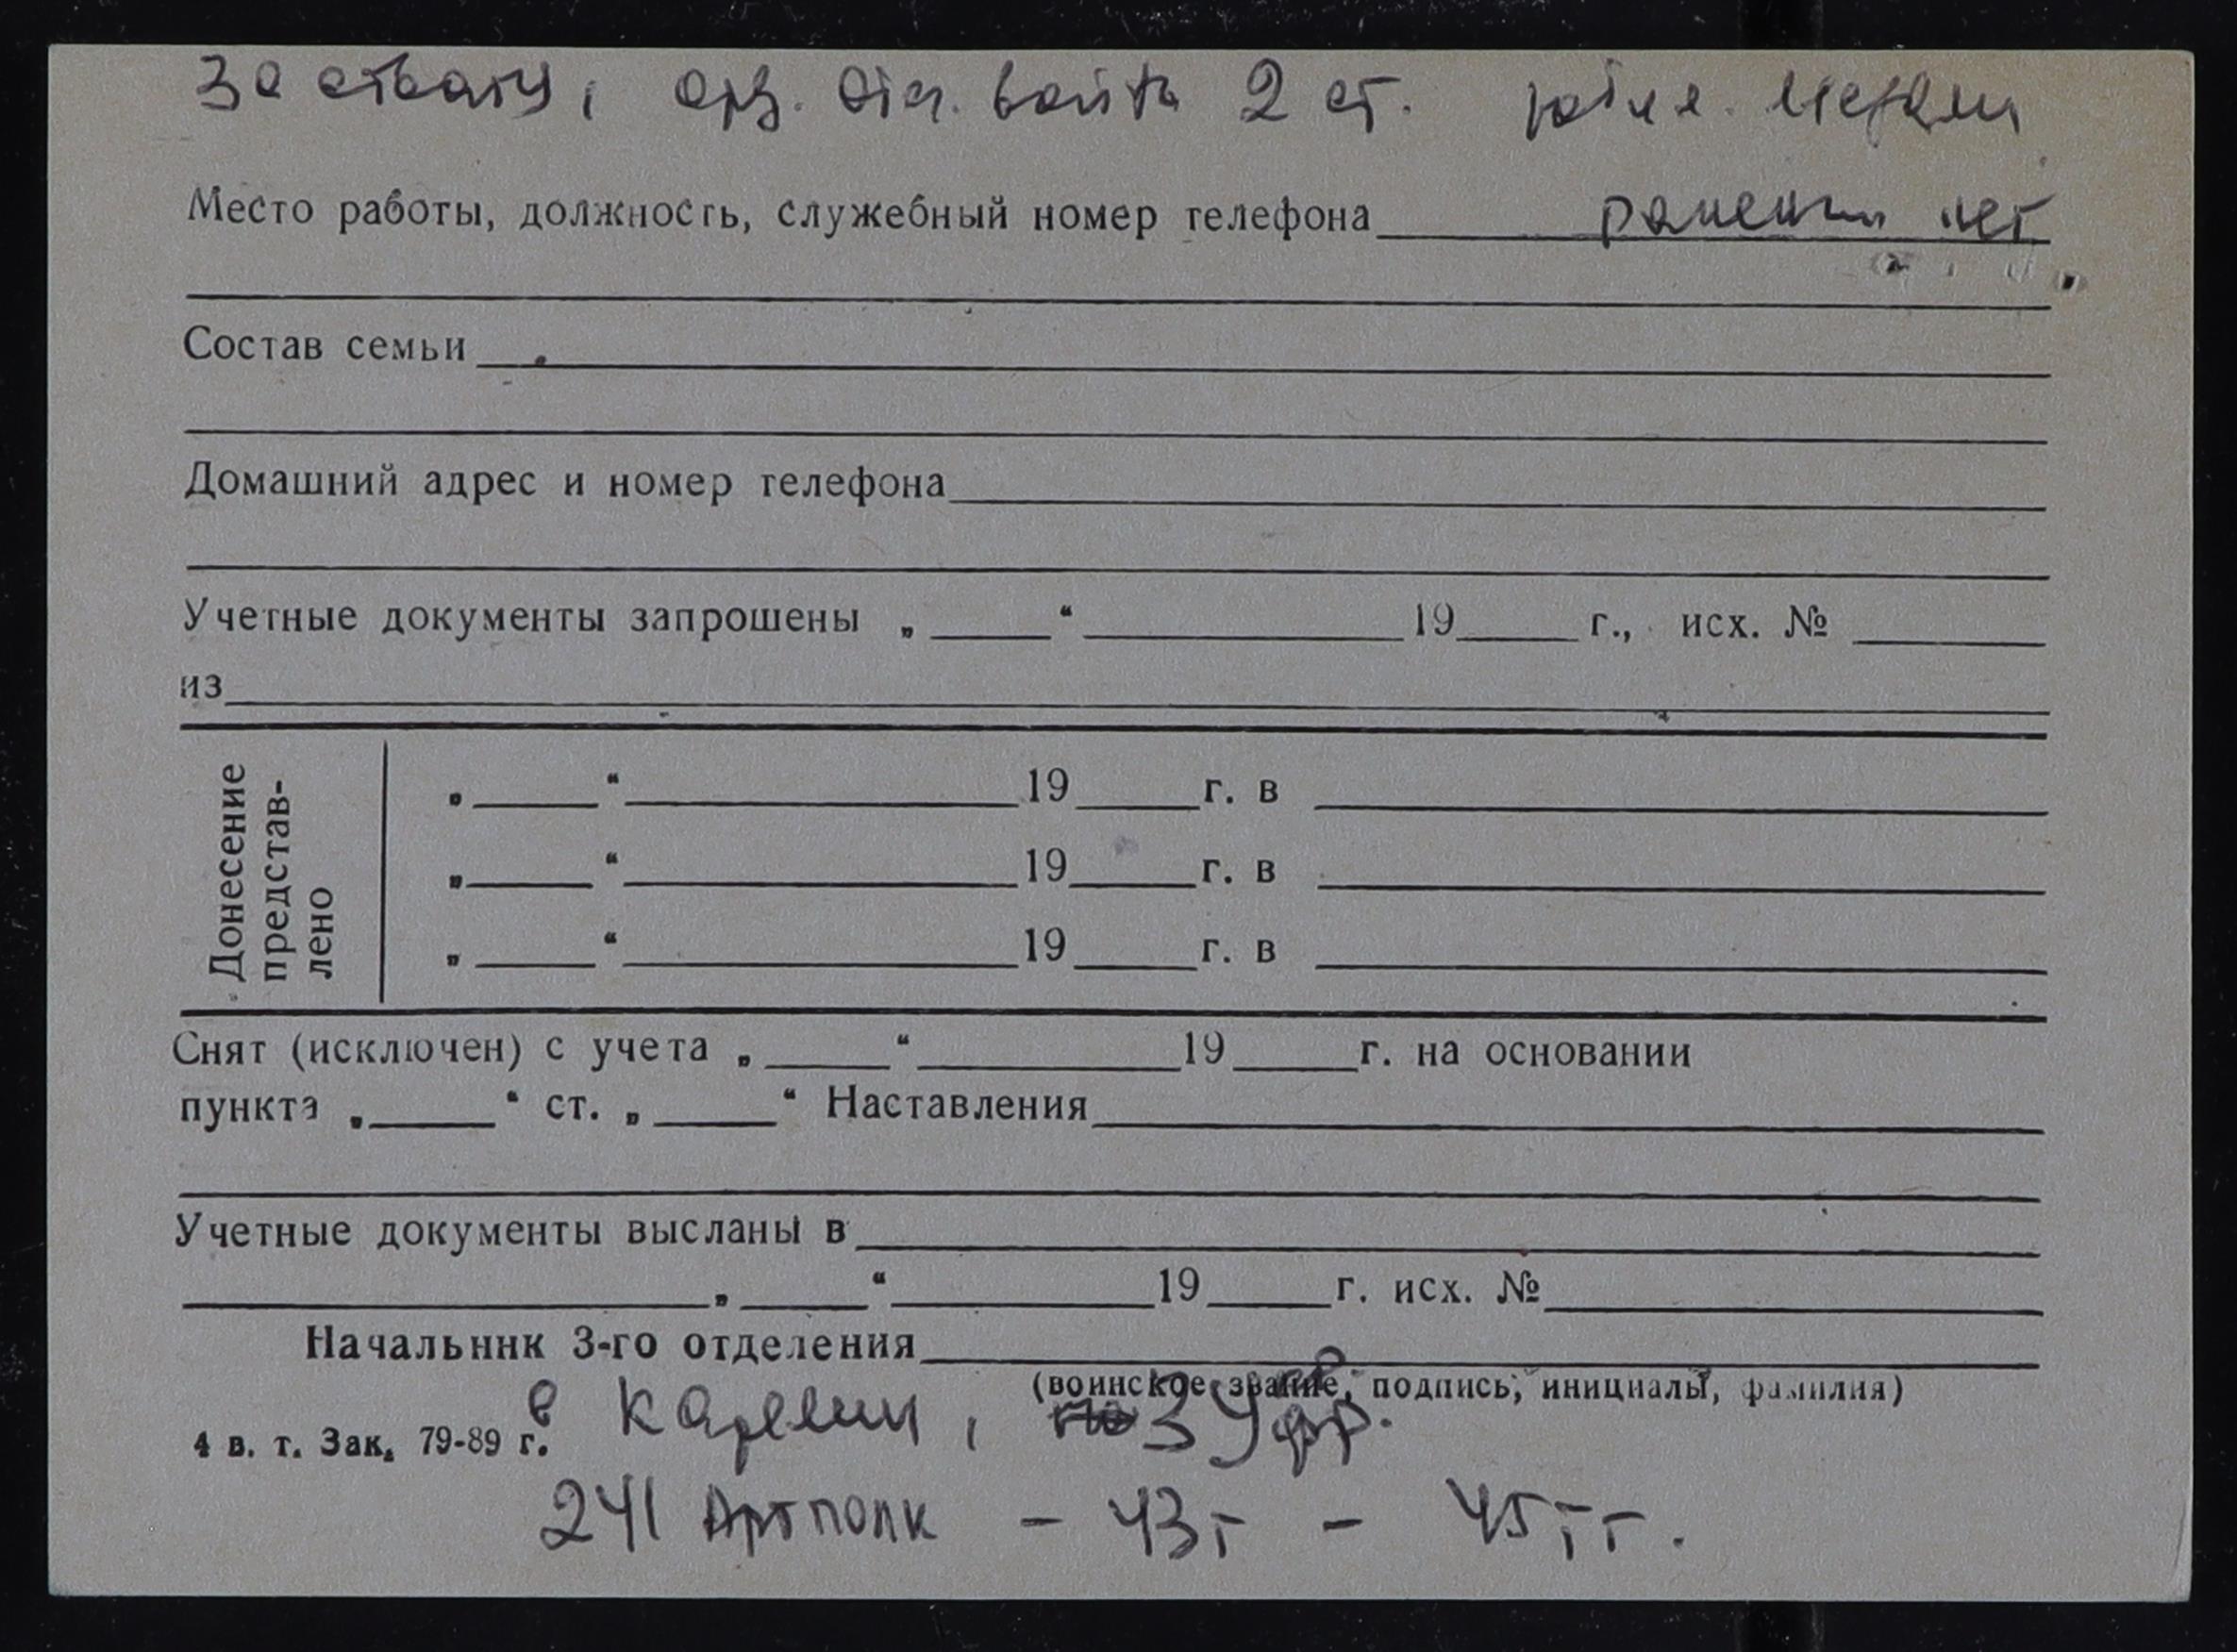 За отвагу, орд. Отеч. войны 2 ст. юбил. медали
Место работы, должность, служебный номер телефона ранений нет
Состав семьи
Домашний адрес и номер телефона
Учетные документы запрошены „ “ 19 г., исх. №
из
Донесение
представ-
лено
„ “ 19 г. в
„ “ 19 г. в
„ “ 19 г. в
Снят (исключен) с учета „ “ 19 г. на основании
пункта „ “ ст. „ “ Наставления
Учетные документы высланы в
„ “ 19 г. исх. №
Начальник 3-го отделения
(воинское звание, подпись, инициалы, фамилия)
в Карелии, 3 Укр. фр.
4 в. т. Зак. 79-89 г.
241 Артполк - 43г - 45гг.